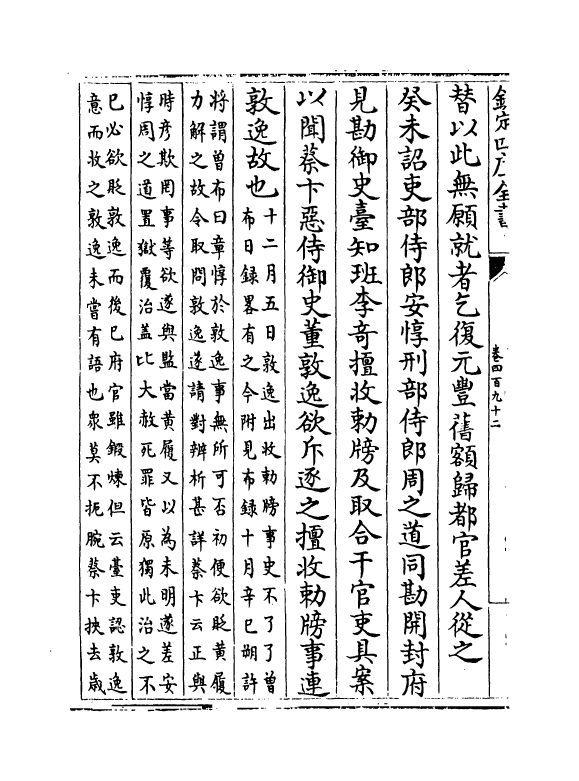 欽定四庫全書
卷四百九十二
替以此無願就者乞復元豐舊額歸都官差人從之
癸未詔吏部侍郎安惇刑部侍郎周之道同勘開封府
見勘御史臺知班李奇擅收勅牓及取合干官吏具案
以聞蔡卞惡侍御史董敦逸欲斥逐之擅收勅牓事連
敦逸故也
十二月五日敦逸出收勅牓事史不了了曾
布日録畧有之今附見布録十月辛巳朔許
將謂曾布曰章惇於敦逸事無所可否初便欲貶黄履
力解之故令取問敦逸遂請對辨析甚詳蔡卞云正與
時彦欺罔事等欲遂與監當黄履又以為未明遂差安
惇周之道置獄覆治盖比大赦死罪皆原獨此治之不
已必欲貶敦逸而後已府官雖鍛煉但云臺吏認敦逸
意而收之敦逸未嘗有語也衆莫不扼腕蔡卞挾去歳